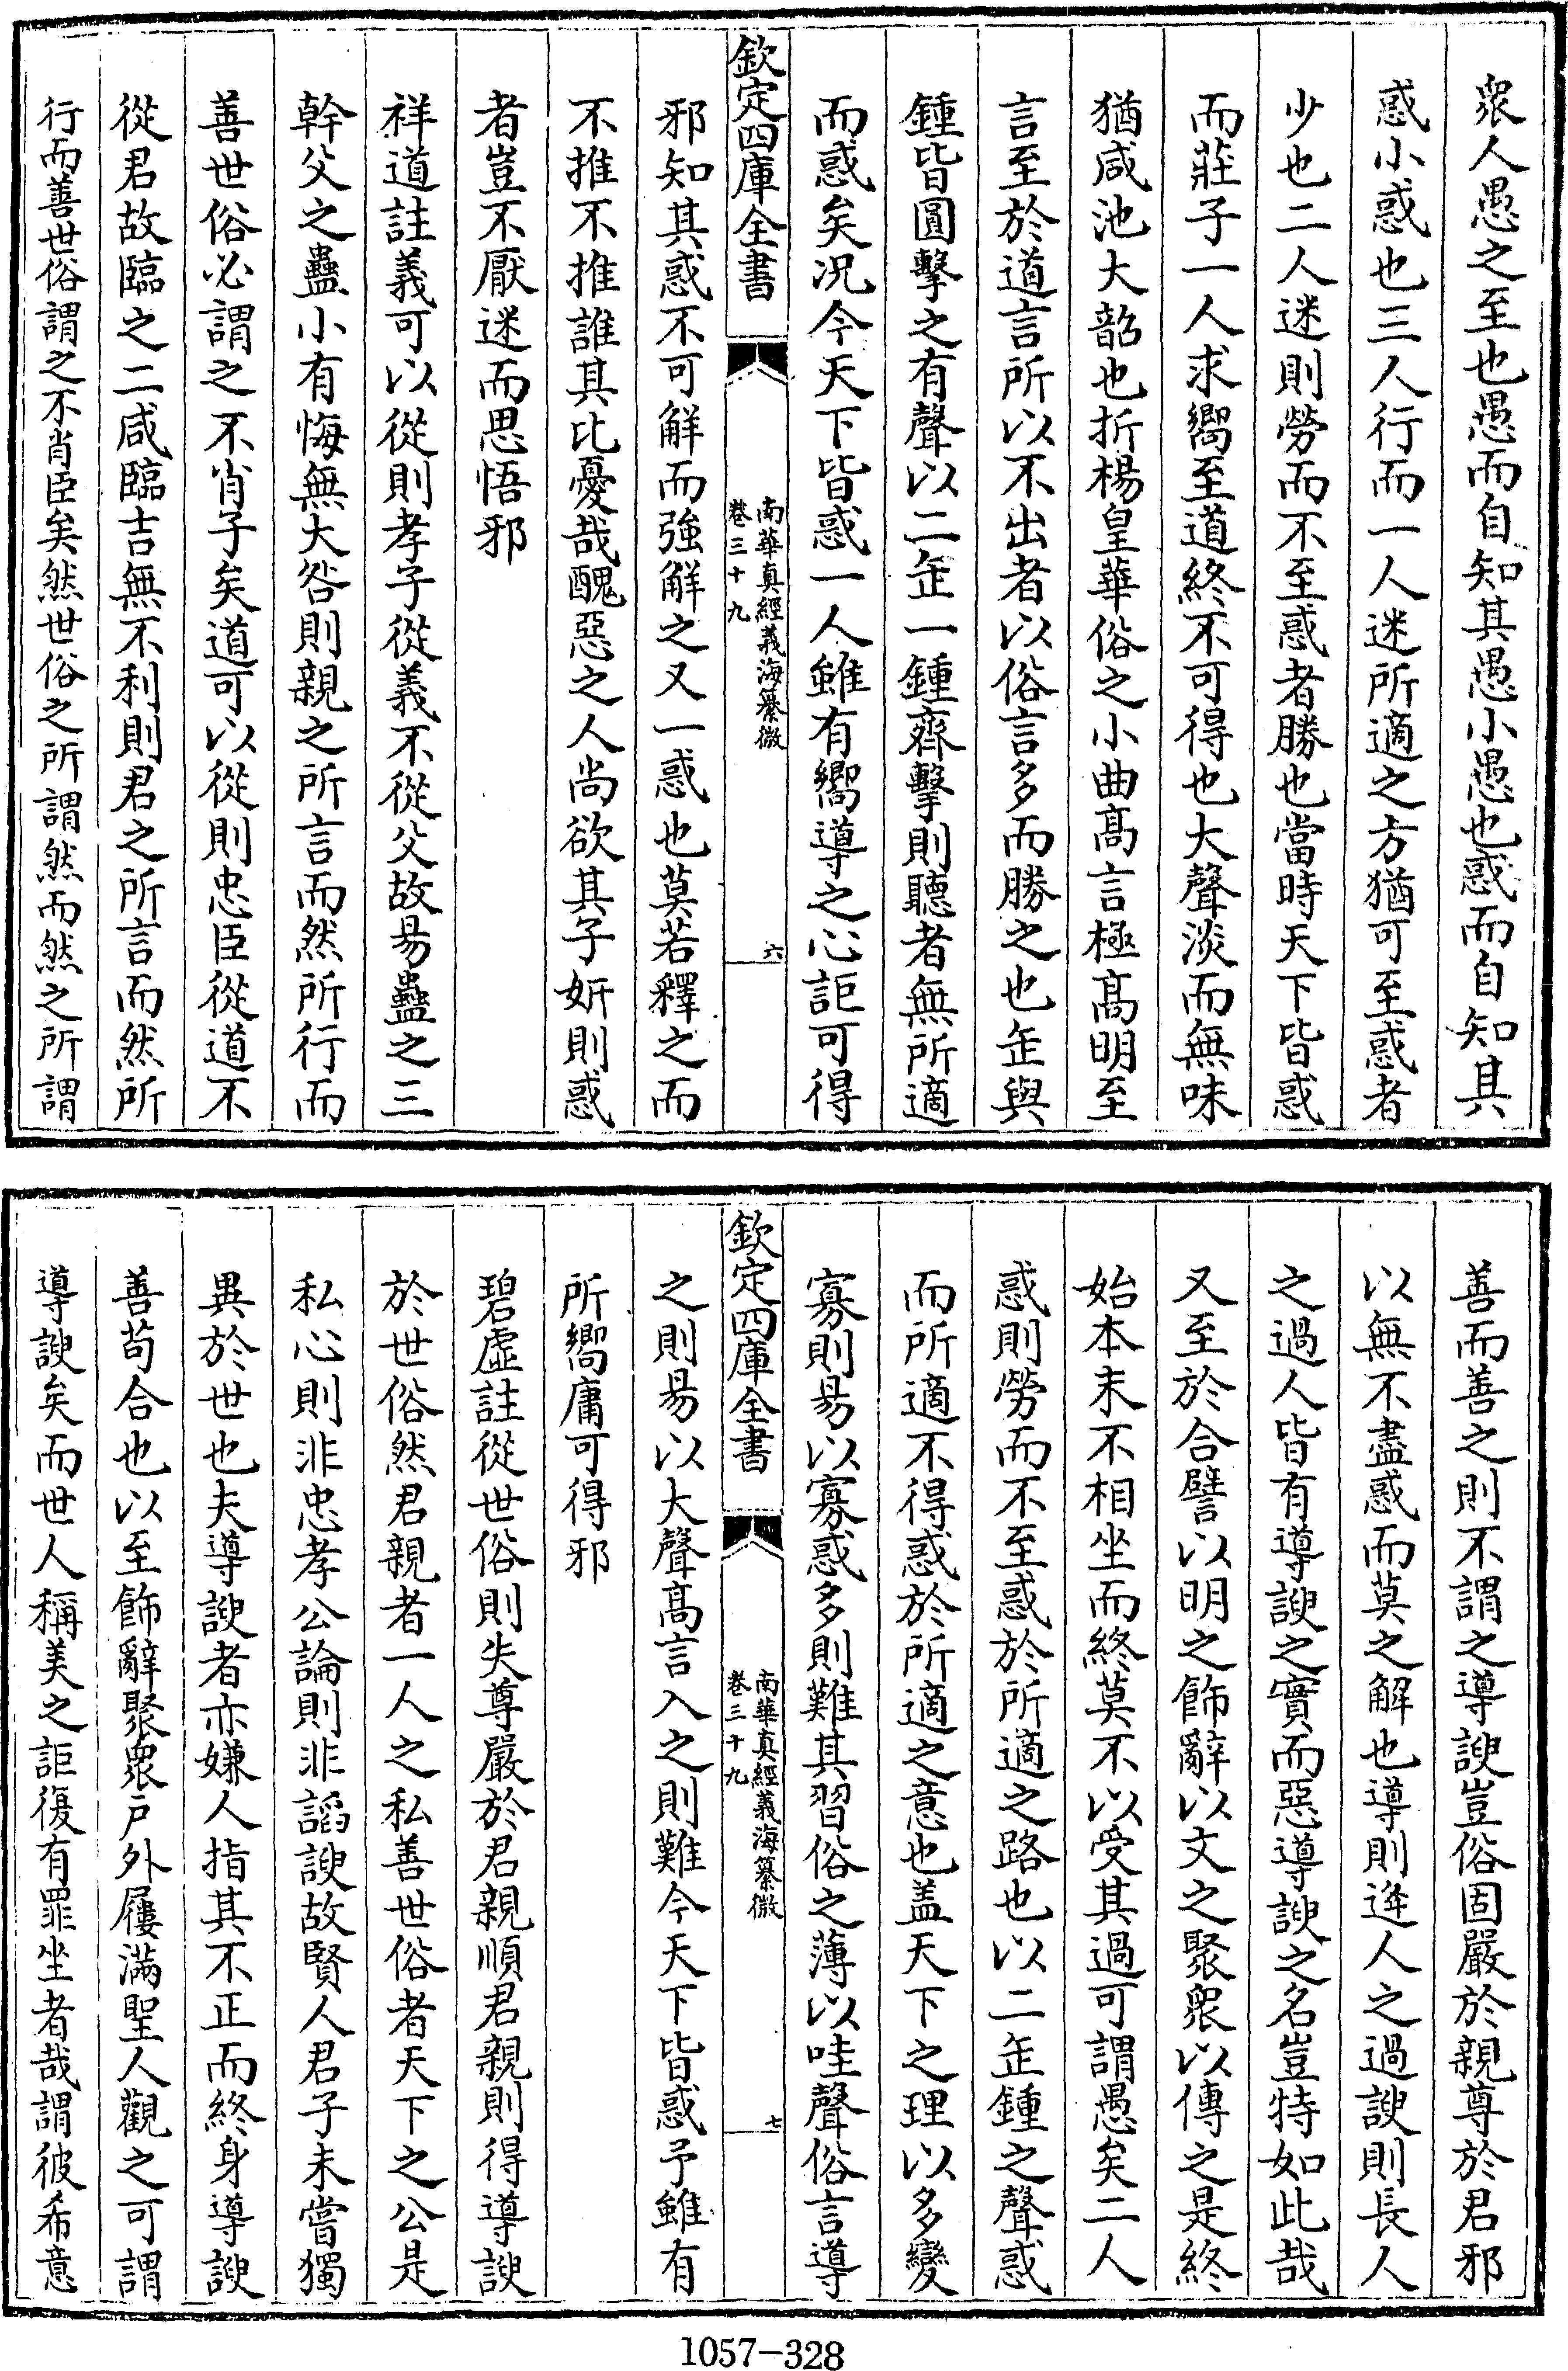 衆人愚之至也愚而自知其愚小愚也惑而自知其
惑小惑也三人行而一人迷所適之方猶可至惑者
少也二人迷則勞而不至惑者勝也當時天下皆惑
而莊子一人求嚮至道終不可得也大聲淡而無味
猶咸池大韶也折楊皇華俗之小曲髙言極髙明至
言至於道言所以不出者以俗言多而勝之也缶與
鍾皆圓擊之有聲以二缶一鍾齊擊則聽者無所適
而惑矣况今天下皆惑一人雖有嚮導之心詎可得
欽定四庫全書
南華真經義海纂微
卷三十九
六
邪知其惑不可解而強解之又一惑也莫若釋之而
不推不推誰其比憂哉醜惡之人尚欲其子妍則惑
者豈不厭迷而思悟邪
祥道註義可以從則孝子從義不從父故易蠱之三
幹父之蠱小有悔無大咎則親之所言而然所行而
善世俗必謂之不肖子矣道可以從則忠臣從道不
從君故臨之二咸臨吉無不利則君之所言而然所
行而善世俗謂之不肖臣矣然世俗之所謂然而然之所謂
善而善之則不謂之導諛豈俗固嚴於親尊於君邪
以無不盡惑而莫之解也導則逢人之過諛則長人
之過人皆有導諛之實而惡導諛之名豈特如此哉
又至於合譬以明之飾辭以文之聚衆以傳之是終
始本末不相坐而終莫不以受其過可謂愚矣二人
惑則勞而不至惑於所適之路也以二缶鍾之聲惑
而所適不得惑於所適之意也盖天下之理以多變
寡則易以寡惑多則難其習俗之薄以哇聲俗言導
欽定四庫全書
南華真經義海纂微
卷三十九
七
之則易以大聲髙言入之則難今天下皆惑予雖有
所嚮庸可得邪
碧虚註從世俗則失尊嚴於君親順君親則得導諛
於世俗然君親者一人之私善世俗者天下之公是
私心則非忠孝公論則非謟諛故賢人君子未嘗獨
異於世也夫導諛者亦嫌人指其不正而終身導諛
善苟合也以至飾辭聚衆戶外屨滿聖人觀之可謂
導諛矣而世人稱美之詎復有罪坐者哉謂彼希意
1057-328